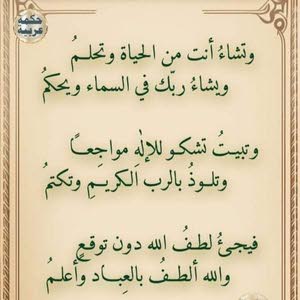 حكمة
عربية
وتشاءُ أنت من الحياة وتحلمُ
ويشاءُ ربّك في السماء ويحكمُ
وتبيتُ تشكو للإلٰهِ مواجعاً
وتلوذُ بالرب الكريمِ وتكتمُ
فيجئُ لطفُ الله دون توقعٍ
والله ألطفُ بالعِباد وأعلمُ